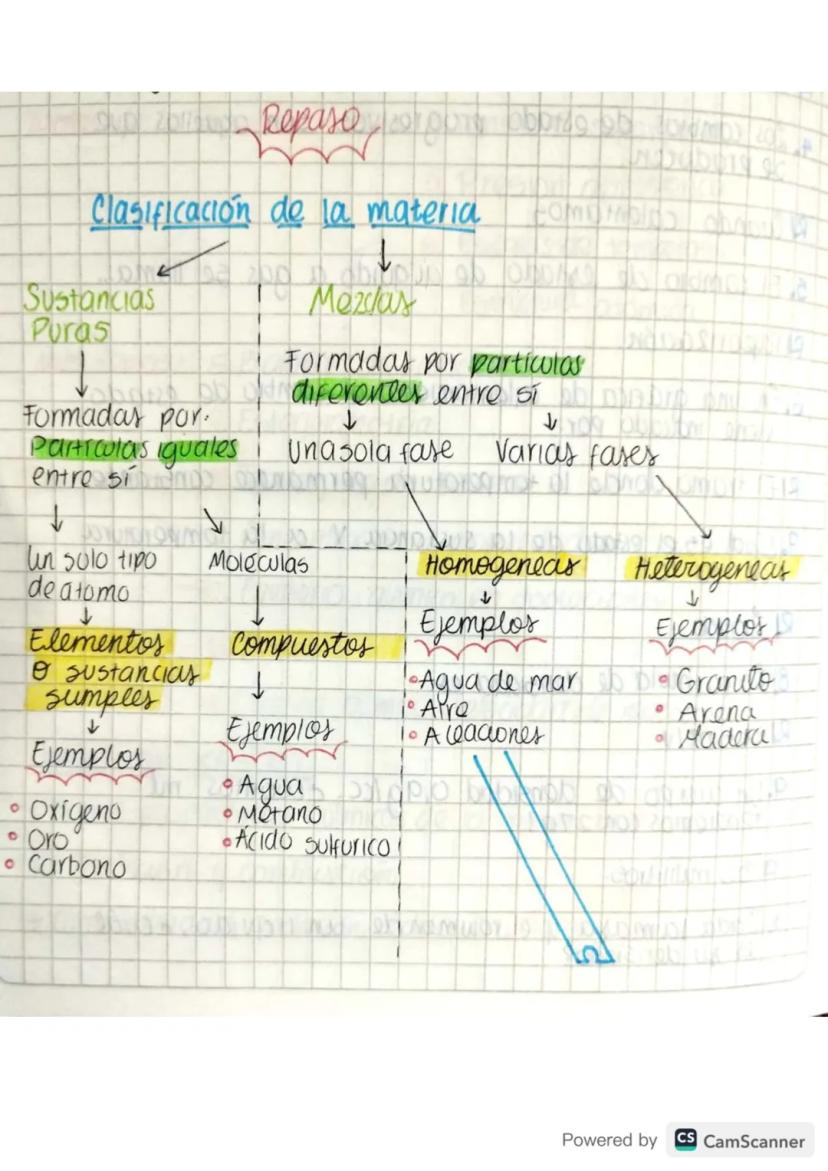 Repaso
Clasificación de la materia
Sustancias
Puras
Formadas por:
Partículas iguales
entre sí
Un solo tipo
de átomo
Elementos
o sustancias
simples
Ejemplos
Oxígeno
Oro
Carbono
Moléculas
Compuestos
Ejemplos
Agua
Metano
Ácido sulfurico
Mezclas
Formadas por partículas
diferentes entre sí
Una sola fase
Homogeneas
Ejemplos
Agua de mar
Aire
Aleaciones
Varias fases
Heterogeneas
Ejemplos
Granito
Arena
Madera
Powered by CS CamScanner